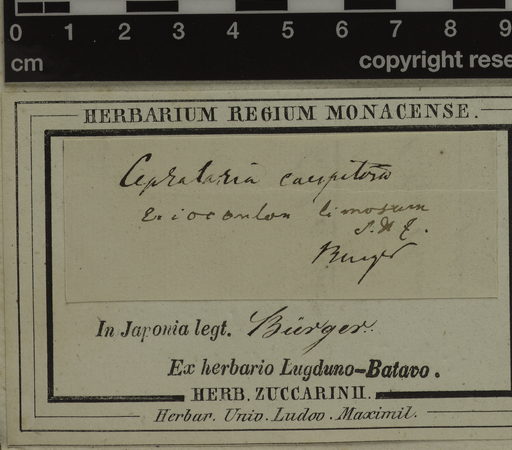 0 1 2 3 4 5 6 7 8 9
cm
copyright rese
HERBARIUM REGIUM MONACENSE.
Cephalaria caespitosa
Eriocaulon limosum
S. & Z.
Burger
In Japonia legt. Bürger.
Ex herbario Lugduno-Batavo.
HERB. ZUCCARINII.
Herbar. Univ. Ludov. Maximil.